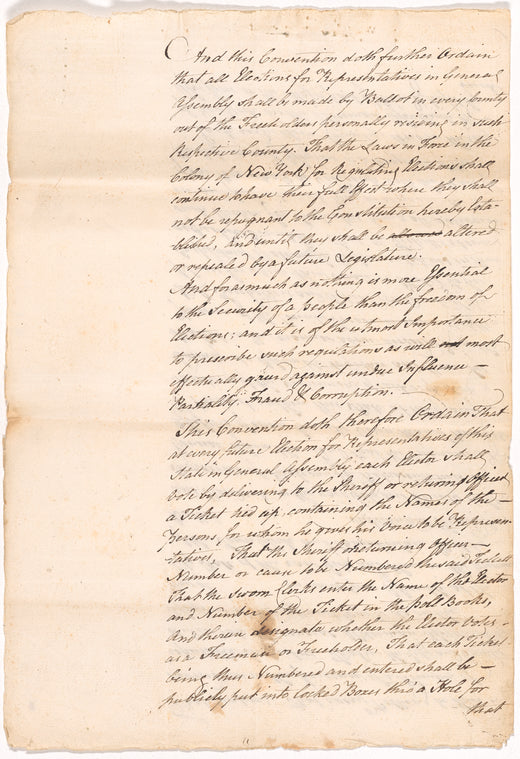 And this Convention doth further Ordain
that all Elections for Representatives in General
Assembly shall be made by Ballot in every County
out of the Freeholders personally residing in such
Respective County. That the Laws in Force in the
Colony of New York for Regulating Elections shall
continue to have their full Effect where they shall
not be repugnant to the Constitution hereby Esta-
blished, and until they shall be altered
or repealed by a future Legislature.
And forasmuch as nothing is more Essential
to the Security of a people than the freedom of
Elections; and it is of the utmost Importance
to prescribe such regulations as will most
effectually guard against undue Influence –
Partiality Fraud & Corruption.
This Convention doth therefore Ordain That
at every future Election for Representatives of this
State in General Assembly each Elector shall
Vote by delivering to the Sheriff or returning Officer
a Ticket tied up, containing the Names of the –
Persons for whom he gives his Voice to be Represen-
tatives, That the Sheriff or returning Officer –
Number or cause to be Numbered the said Tickett
That the Sworn Clerks enter the Name of the Elector
and Number of the Ticket in the Poll Books,
And therein designate whether the Elector Votes –
as a Freeman or Freeholder, That each Ticket
being thus Numbered and entered shall be –
publicly put into locked Boxes thro' a Hole for
that